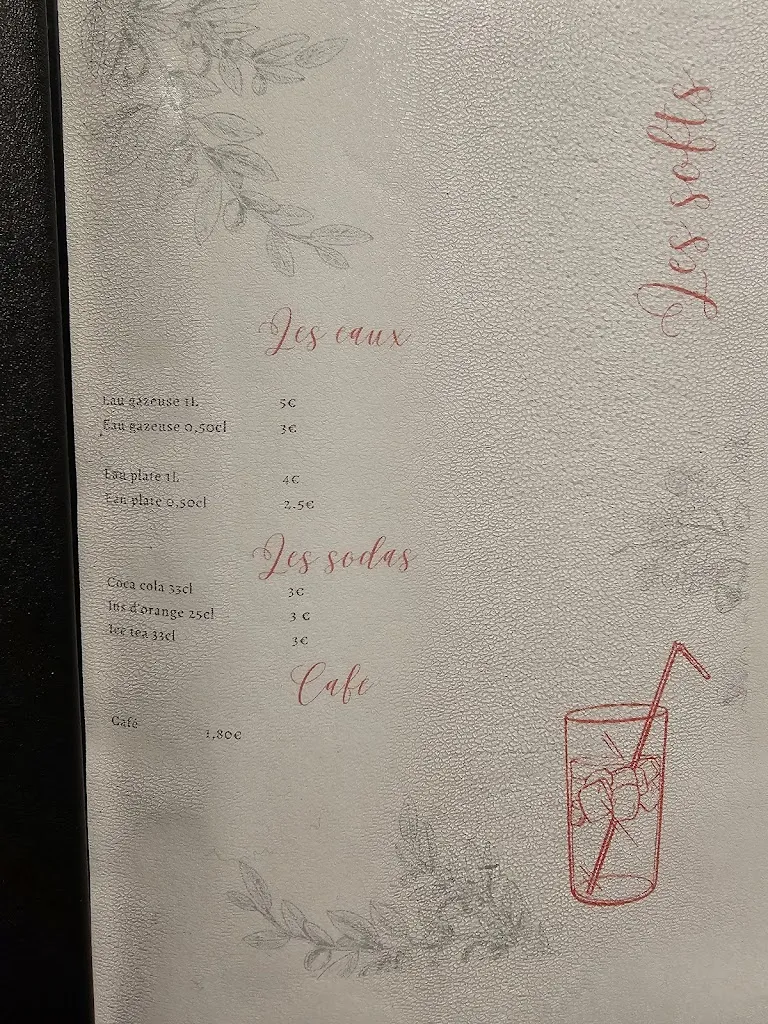 Les softs
Les eaux
Eau gazeuse 1L 5€
Eau gazeuse 0,50cl 3€
Eau plate 1L 4€
Eau plate 0,50cl 2.5€
Les sodas
Coca cola 33cl 3€
Jus d'orange 25cl 3 €
Ice tea 33cl 3€
Cafe
Café 1,80€